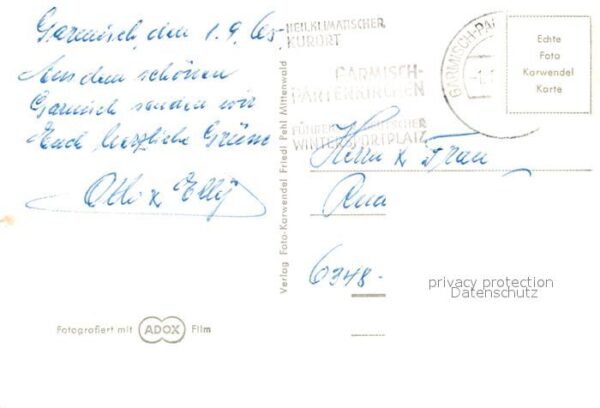 Garmisch, den 1.9.65.
Aus dem schönen
Garmisch senden wir
Euch herzliche Grüsse
Otto & Elly
Fotografiert mit ADOX Film
Verlag Foto-Karwendel Friedl Pehl Mittenwald
HEILKLIMATISCHER
KURORT
GARMISCH-
PARTENKIRCHEN
FÜHRENDER DEUTSCHER
WINTERSPORTPLATZ
GARMISCH-PA
-1.
Echte
Foto
Karwendel
Karte
Herrn & Frau
6348-
privacy protection
Datenschutz